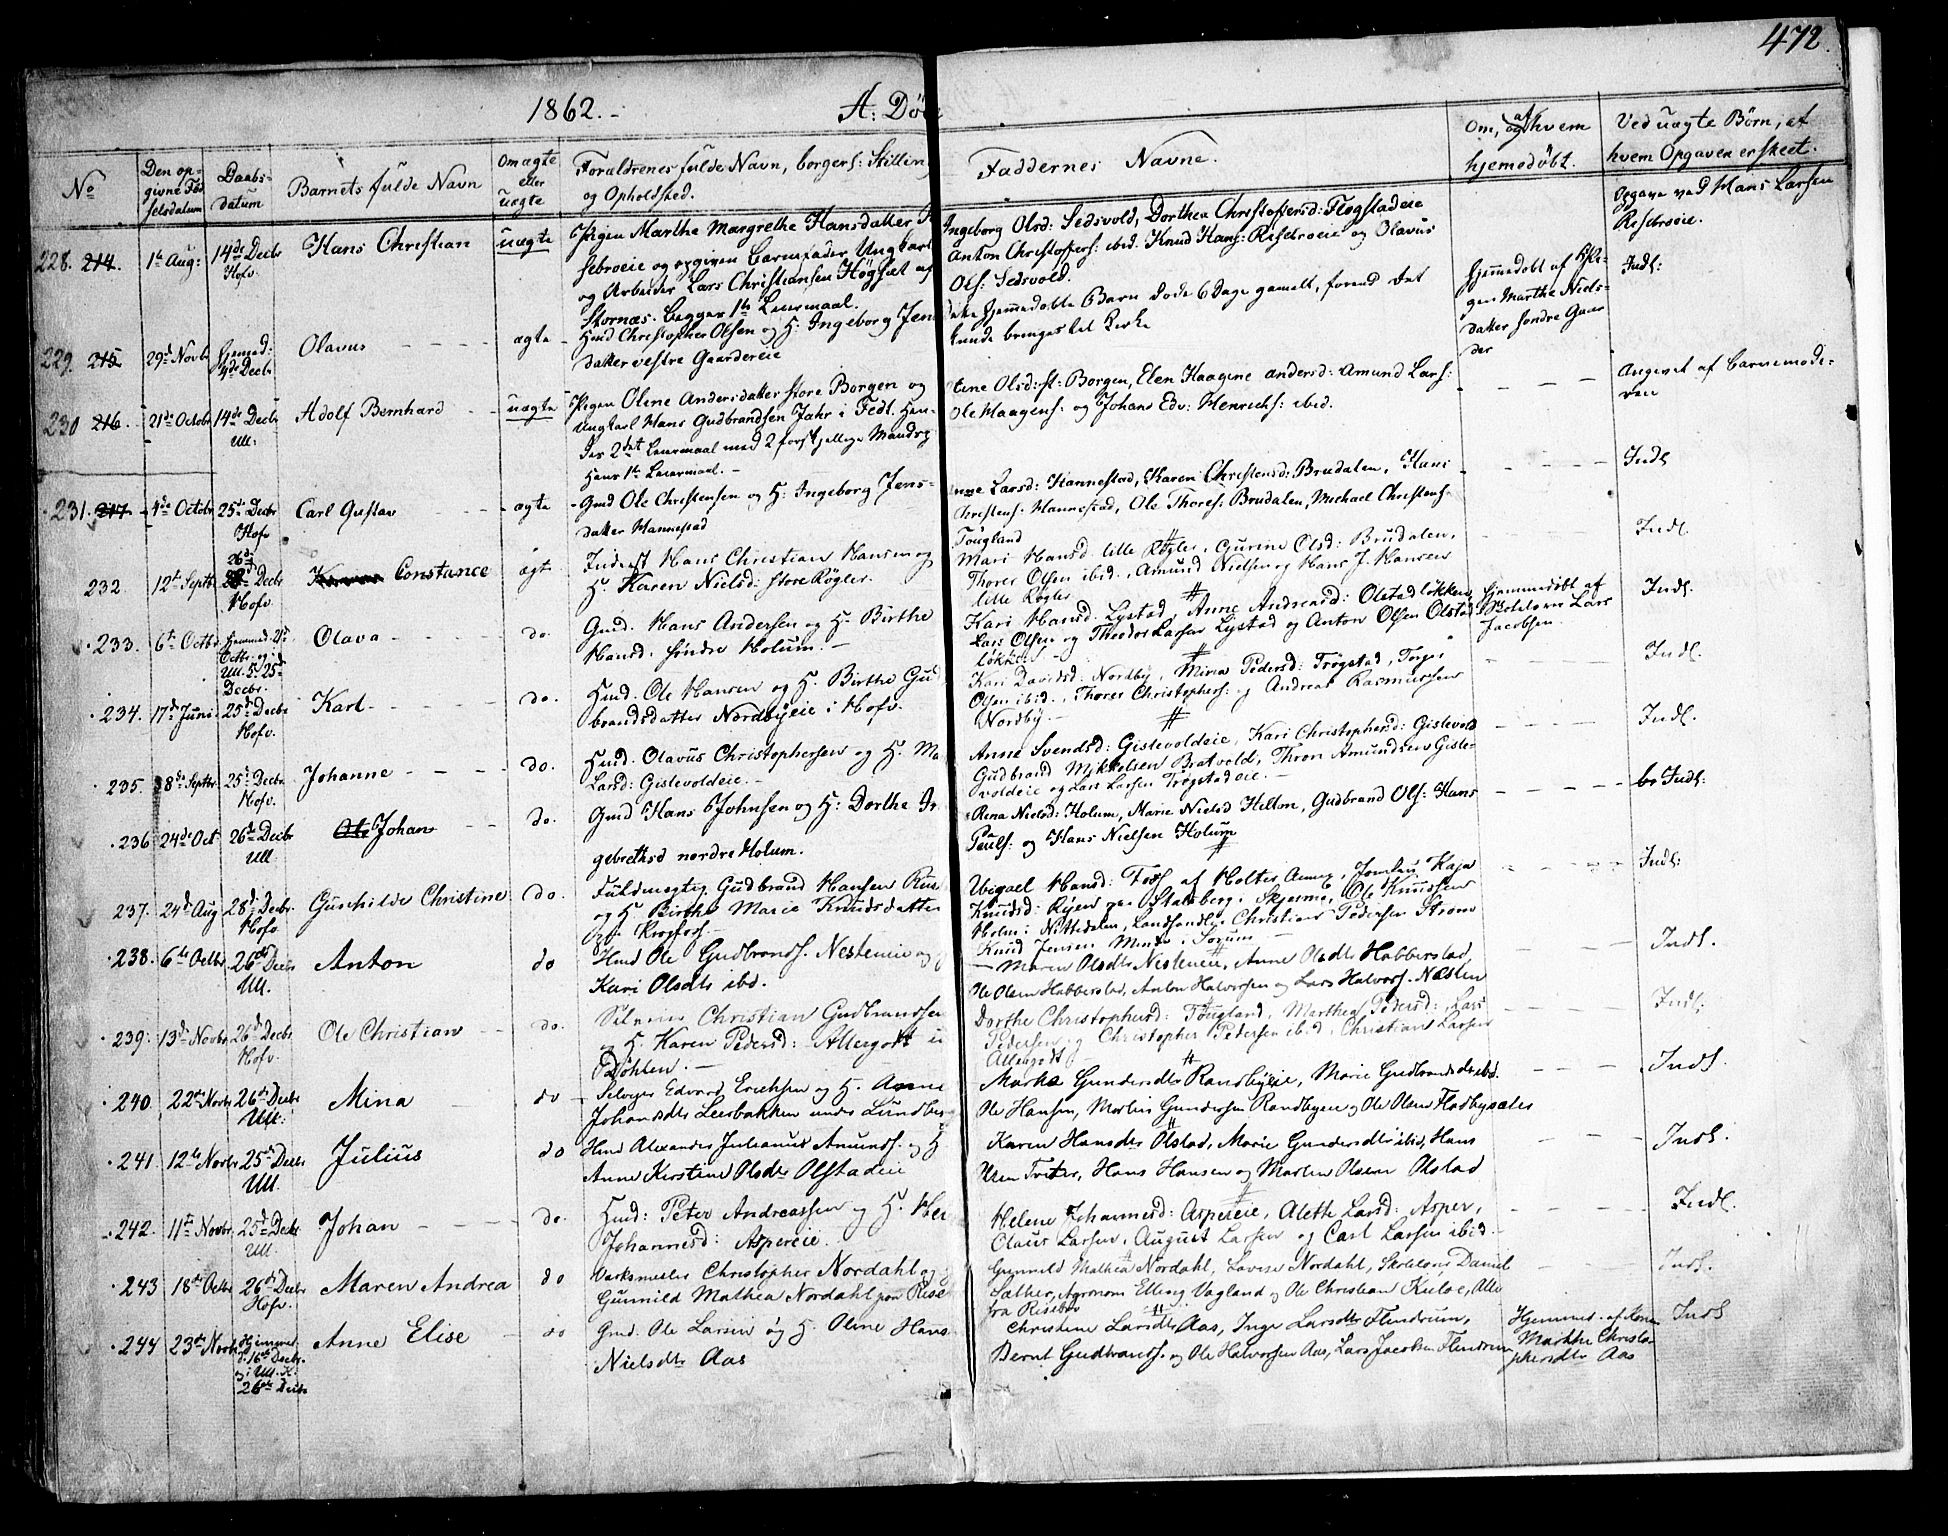 472.
1862.- A: Dö
No
Den opgivne Fødselsdatum
Daabsdatum
Barnets fulde Navn
Om ægte eller uægte
Forældrenes fulde Navn, borgerl: Stilling og Opholdsted.
Faddernes Navne.
Om, og af hvem hjemmedöbt.
Ved uægte Børn, af hvem Opgaven er skeet.
228. 214. 1ste Aug: 14de Decbr Hofv. Hans Christian uægte
Pigen Marthe Margrethe Hansdatter
sebroeie og opgiven Barnefader Ungkarl
og Arbeider Lars Christiansen Högset af
Stornæs. Begges 1ste Leiermaal.
Ingeborg Olsd: Sedsvold, Dorthea Christoffersd: Flogstadeie
Anton Christoffers: ibid. Knud Hans: Risebroeie og Olavus
Ols: Sedsvold.
Opgave ved Hans Larsen
Risebroeie.
229. 215 29de Novbr Hjemmed: 4de Decbr Olavus ægte
Hmd Christopher Olsen og H: Ingeborg Jens
datter vestre Gaardereie
dette hjemmedöbte Barn döde 6 Dage gamelt, forend det
kunde bringes til Kirke
Hjemmedöbt af Pigen Marthe Nielsdatter söndre Gaarder
Indl:
230 216. 21de Octobr 14de Decbr Ull: Adolf Bernhard uægte
Pigen Oline Andersdatter store Borgen og
Ungkarl Hans Gudbrandsen Jahr i Fedt. Hendes 2det Leiermaal med 2 forskjellige Mandsp
Hans 1ste Leiermaal.-
Olsd: st: Borgen, Elen Haagine Andersd: Amund Lars:
Ole Haagens: og Johans Edv: Henrichs: ibid.
Angivet af Barnemoderen
231. 217 4de Octobr 25de Decbr Hofv Carl Gustav ægte
Gmd Ole Christensen og H: Ingeborg Jensdatter Hannestad
Larsd: Hannestad, Karen Christensd: Brudalen, Hans
Christens: Hannestad, Ole Thores: Brudalen, Michael Christens:
Tougland
Indl
232. 12te Septbr 26de Decbr Hofv. Constance ægt
Inderst Hans Christian Hansen og
H. Karen Nielsd: store Røgler.
Mari Hansd. lille Røgler, Gurine Olsd: Brudalen,
Thores Olsen ibid., Amund Nielsen og Hans J. Hansen
lille Røgler
Indl.
233. 6te Octbr Hjemmed. 25de Octbr. og i Ull. K. 25de Decbr. Olava do.
Gmd. Hans Andersen og H. Birthe
Hansd. söndre Holum.-
Kari Hansd. Lystad, Anne Andreasd: Olstadløkken,
Lars Olsen og Theodor Larsen Lystad og Anton Olsen Olstadløkken
Hjemmedöbt af Skolelærer Lars Jacobsen.
Indl.
234. 17de Juni 25de Decbr Hofv. Karl do.
Hmd. Ole Hansen og H. Birthe Gudbrandsdatter Nordbyeie i Hofv.
Kari Davidsd: Nordby, Mina Pedersd: Trøgstad, Torger
Olsen ibid., Thores Christophers: og Andreas Rasmussen
Nordby
Indl.
235. 8de Septbr. 25de Decbr Hofv. Johanne do.
Hmd. Olavus Christophersen og H. Ma
Larsd: Gistevoldeie.
Anne Svendsd: Gistevoldeie, Kari Christophersd: Gistevold
Gudbrand Mikkelsen Bratvold, Thron Amundsen Gistevoldeie og Lars Larsen Trøgstadeie.
Indl.
236 24de Oct. 26de Decbr Ull Johan do.
Gmd Hans Johnsen og H: Dorthe Ingebretsd nordre Holum.
Rena Nielsd: Holum, Marie Nielsd Helton, Gudbrand Ols: Hans
Pauls: og Hans Nielsen Holum
Indl:
237. 24de Aug 28de Decbr. Hofv Gunhilde Christine do.
Fuldmegtig Gudbrand Hansen
og H. Birthe Marie Knudsdatter
Abigael Hansd:
Knudsd:
Holm i Nittedalen, Landhandler Christian Pedersen Strøm
Knud Jensen
Indl:
238. 6te Octbr. 26de Decbr Ull. Anton do
Hmd Ole Gudbrands. Nesteneie og
Kari Olsdtr ibd.
Maren Olsdtr Nesteneie, Anne Olsdtr Habberstad,
Ole Olsen Habberstad, Anton Halvorsen og Lars Halvors. Næsten
Indl.
239. 13de Novbr. 26de Decbr Hofv. Ole Christian do.
Selveier Christian Gudbrandsen
og H. Karen Pedersd: Allergodt
Døhlen.
Dorthe Christophersd: Tougland, Marthea Pedersd: Lars
Pedersen og Christopher Pedersen ibid, Christian Larsen
Allergodt
Indl:
240 22de Novbr 26de Decbr Ull: Mina do
Selveier Edvard Erichsen og H. Anne
Johansdtr Leerbakken under Lundby
Marthe Gundersdtr Randbyeie, Marie Gudbrandsdtr ibd.
Ole Hansen, Martin Gundersen Randbyeie og Ole Olsen Fladbysæter
Indl.
241 12te Novbr. 25de Decbr Ull. Julius do
Hmd Alexander Julianus Amunds. og H
Anne Kirstine Olsdtr Olstadeie
Karen Hansdtr Olstad, Marie Gundersdtr ibid, Hans
Olsen Triter, Hans Hansen og Martin Olsen Olstad
Indl.
242. 11te Novbr. 25de Decbr Ull. Johan do.
Hmd: Peter Andreassen og H.
Johannesd: Aspereie.
Helene Johannesd: Aspereie, Alette Larsd: Asper,
Claus Larsen, August Larsen og Carl Larsen ibid.
Indl.
243 18de Octbr 26de Decbr Hofv. Maren Andrea do
Værksmester Christopher Nordahl og
Gunnild Mathea Nordahl paa Rise
Gunnild Mathea Nordahl, Lovise Nordahl, Skolelærer Daniel
Sæther, Agronom Elling Vagland og Ole Christian Kuloe, Alle
fra Risebro
Indl.
244 23de Novbr Hjemmed. d. 16de Decbr. og i Ull. K. 26de Decbr Anne Elise do
Gmd. Ole Larsen og H. Oline Hans
Nielsdtr Aas
Christine Larsdtr Aas, Inge Larsdtr Flendrum,
Bernt Gudbrands. og Ole Halvorsen Aas, Lars Jacobsen Flendrum
Hjemmed. af Kone Marthe Christophersdtr Aas
Indl